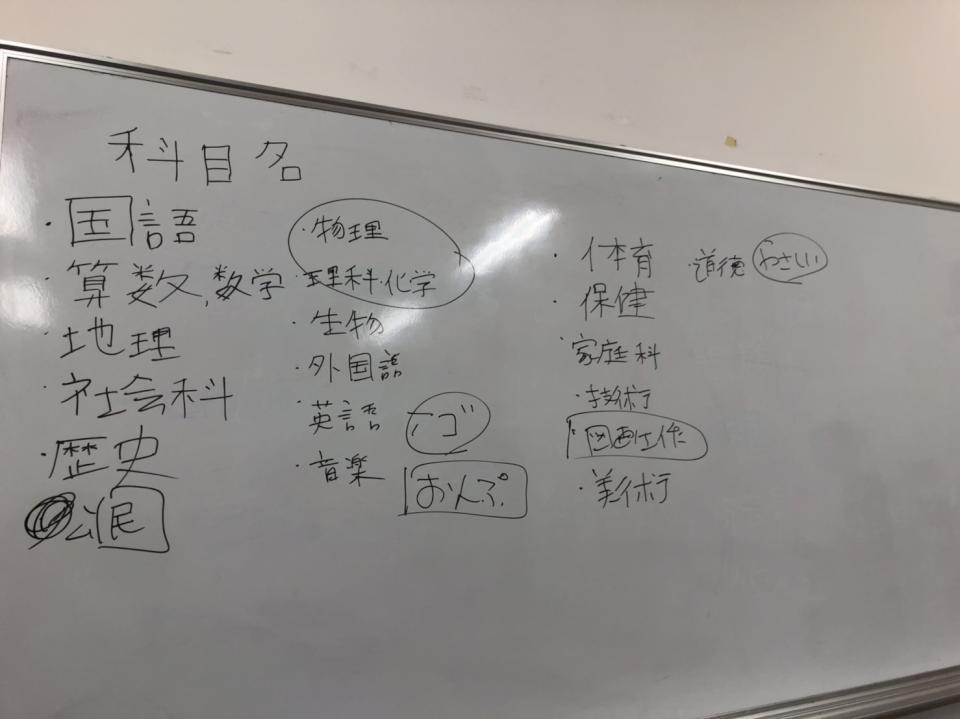 科目名
・国語
・算数,数学
・地理
・社会科
・歴史
公民
・物理
・理科・化学
・生物
・外国語
・英語
・音楽
おんぷ
・体育
・保健
・家庭科
・技術
・図画工作
・美術
・道徳